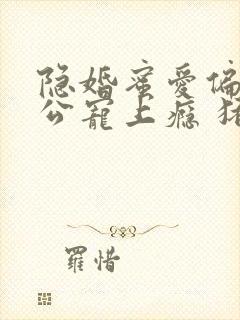 隐婚蜜爱偏
公宠上瘾
羅惜